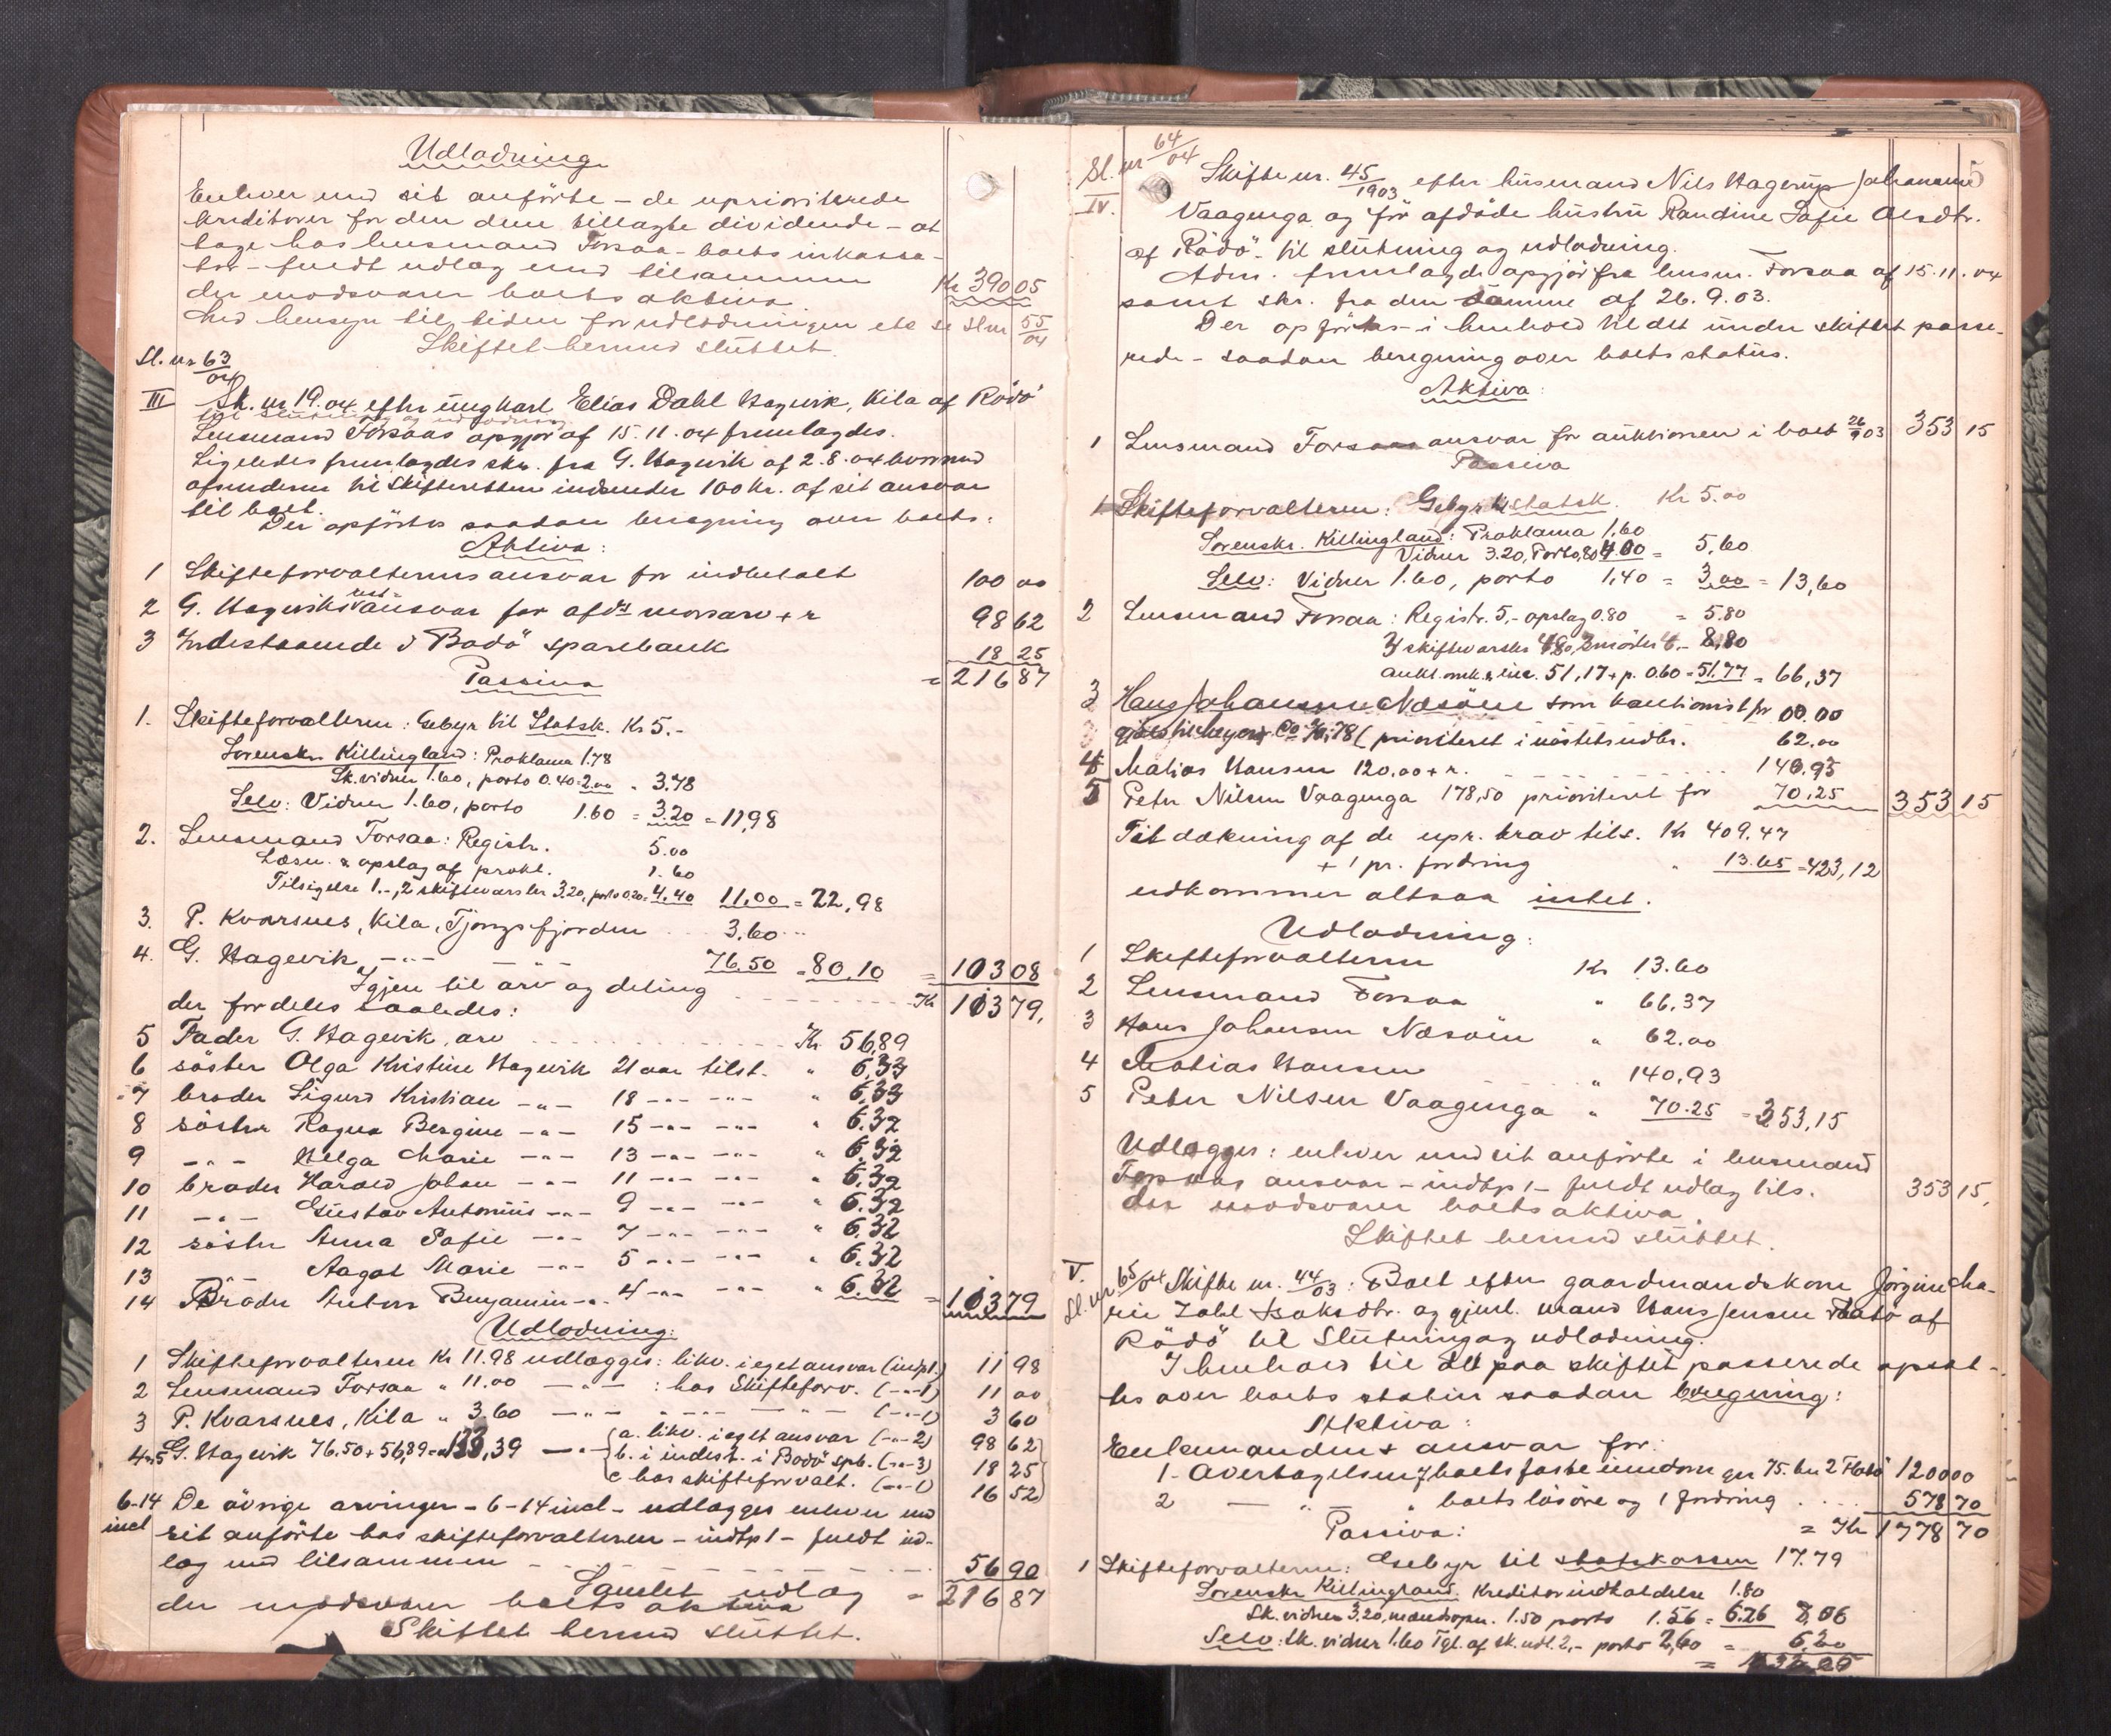 Udlodning
Enhver med sit anförte - de uprioriterede
kreditorer for den dem tillagte dividende - at
tage hos lensmand Forsaa - boets inkassa-
tor - fuldt udlæg med tilsammen Kr 390 05
der modsvarer boets aktiva
Med hensyn til tiden for udlodningen etc se Sl nr 55/04
Skiftet hermed sluttet.
Sl. nr 63/04
III Sk. nr 19.04 efter ungkarl Elias Dahl Hagevik, Kila af Rödö
til slutning og udlodning
Lensmand Forsaas opgjör af 15.11.04 fremlagdes.
Ligeledes fremlagdes skr. fra G. Hagevik af 2.8.04 hvormed
afsenderen til Skifteretten indsender 100 Kr. af sit ansvar
til boet.
Der opförtes saadan beregning over boets:
Aktiva:
1 Skifteforvalterens ansvar for indbetalt 100 00
2 G. Hageviks rest ansvar for afdes morsarv + r 98 62
3 Indestaaende i Bodö sparebank 18 25
Passiva = 216 87
1. Skifteforvalteren: Gebyr til Statsk. Kr 5.-
Sorenskr. Killingland: Proklama 1.78
Sk.vidner 1.60, porto 0.40 = 2.00 - 3.78
Selv: Vidner 1.60, porto 1.60 = 3.20 = 11,98
2. Lensmand Forsaa: Registr. 5.00
Læsn. & opslag af prokl. 1.60
Tilsigelse 1.-, 2 skiftevarsler 3.20, porto 0.20 = 4.40 11.00 = 22,98
3. P. Kvarsnes, Kila, Tjongsfjorden 3.60
4. G. Hagevik 76.50 = 80,10 = 103 08
Igjen til arv og deling Kr 113 79,
der fordeles saaledes:
5 Fader G. Hagevik, arv Kr 56,89
6 söster Olga Kristine Hagevik 21 aar tilst. " 6,33
7 broder Sigurd Kristian -"- 18 -"- -"- " 6,33
8 söster Ragna Bergine -"- 15 -"- -"- " 6.32
9 -"- Helga Marie -"- 13 -"- -"- " 6,32
10 broder Harald Johan -"- 11 -"- -"- " 6.32
11 -"- Gustav Antonius -"- 9 -"- -"- " 6.32
12 söster Anna Sofie -"- 7 -"- -"- " 6.32
13 -"- Aagot Marie -"- 5 -"- -"- " 6.32
14 Broder Anton Benjamin -"- 4 -"- -"- " 6.32 = 113 79
Udlodning:
1 Skifteforvalteren Kr 11.98 udlægges: likv. i eget ansvar (indtp 1.) 11 98
2 Lensmand Forsaa " 11.00 -"- : hos Skifteforv. (-"- 1) 11 00
3 P. Kvarsnes, Kila " 3.60 -"- -"- -"- (-"- 1) 3 60
4 & 5 G. Hagevik 76.50 + 56,89 = 133,39 -"- a. likv. i eget ansvar (-"- 2) 98 62
b. i indest. i Bodö spb. (-"- 3) 18 25
c hos skifteforvalt. (-"- 1) 16 52
6-14 incl De övrige arvinger - 6-14 incl - udlægges enhver med
sit anförte hos skifteforvalteren - indtp 1 - fuldt ud-
læg med tilsammen 56 90
Samlet udlæg = 216 87
der modsvarer boets aktiva
Skiftet hermed sluttet.
5
Sl. nr 64/04
IV. Skifte nr. 45/1903 efter husmand Nils Hagerup Johansen
Vaagenga og för afdöde hustru Randine Sofie Olsdtr.
af Rödö - til slutning og udlodning.
Adm. fremlagde opgjör fra lensm. Forsaa af 15.11.04
samt skr. fra den samme af 26.9.03.
Der opförtes - i henhold til det under skiftet passe-
rede - saadan beregning over boets status.
Aktiva:
1 Lensmand Forsaas ansvar for auktionen i boet 26/9 03 353 15
Passiva
1 Skifteforvalteren: Gebyr til statsk. Kr 5.00
Sorenskr. Killingland: Proklama 1,60
Vidner 3.20, Porto,80 4.00 = 5,60
Selv: Vidner 1.60, porto 1,40 = 3,00 = 13,60
2 Lensmand Forsaa: Registr. 5,- opslag 0.80 = 5.80
3 skiftevarsler 4.80, 2 möder 4.- 8,80
Aukt.omk. & inc. 51,17 + p. 0.60 = 51.77 = 66,37
3 Hans Johansen Næsöien som kautionist for
(prioriteret i nöstets udbr. 62.00
4 Matias Hansen 120.00 + r. 140.93
5 Peter Nilsen Vaagenga 178,50 prioriteret for 70,25 353 15
Til dækning af de upr. krav tils. Kr 409.47
+ 1 pr. fordring " 13.65 = 423,12
udkommer altsaa intet.
Udlodning:
1 Skifteforvalteren Kr 13.60
2 Lensmand Forsaa " 66,37
3 Hans Johansen Næsöien " 62.00
4 Matias Hansen " 140,93
5 Peter Nilsen Vaagenga " 70.25 = 353,15
Udlægges: enhver med sit anförte i lensmand
Forsaas ansvar - indtp 1 - fuldt udlæg tils. 353 15,
der modsvarer boets aktiva.
Skiftet hermed sluttet.
V.
Sl. nr 65/04 Skifte nr. 44/03: Boet efter gaardmandskone Jörgine Ma-
rie Zahl Isaksdtr. og gjenl. mand Hans Jensen Flatö af
Rödö til Slutning og udlodning.
I henhold til det paa skiftet passerede opsat-
tes over boets status saadan beregning:
Aktiva:
Enkemandens ansvar for:
1 - Overtagelsen af boets faste eiendom gnr 75. bnr 2 Flatö 1200 00
2 - " - " boets lösöre og 1 fordring 578 70
Passiva: = Kr 1778 70
1 Skifteforvalteren: Gebyr til statskassen 17.79
Sorenskr. Killingland. Kreditorindkaldelse 1.80
Sk.vidner 3.20, 1.50 porto 1.56 = 6.26 8,06
Selv: Sk.vidner 1.60 Tgl. af sk.udl. 2,- porto 2,60 = 6,20